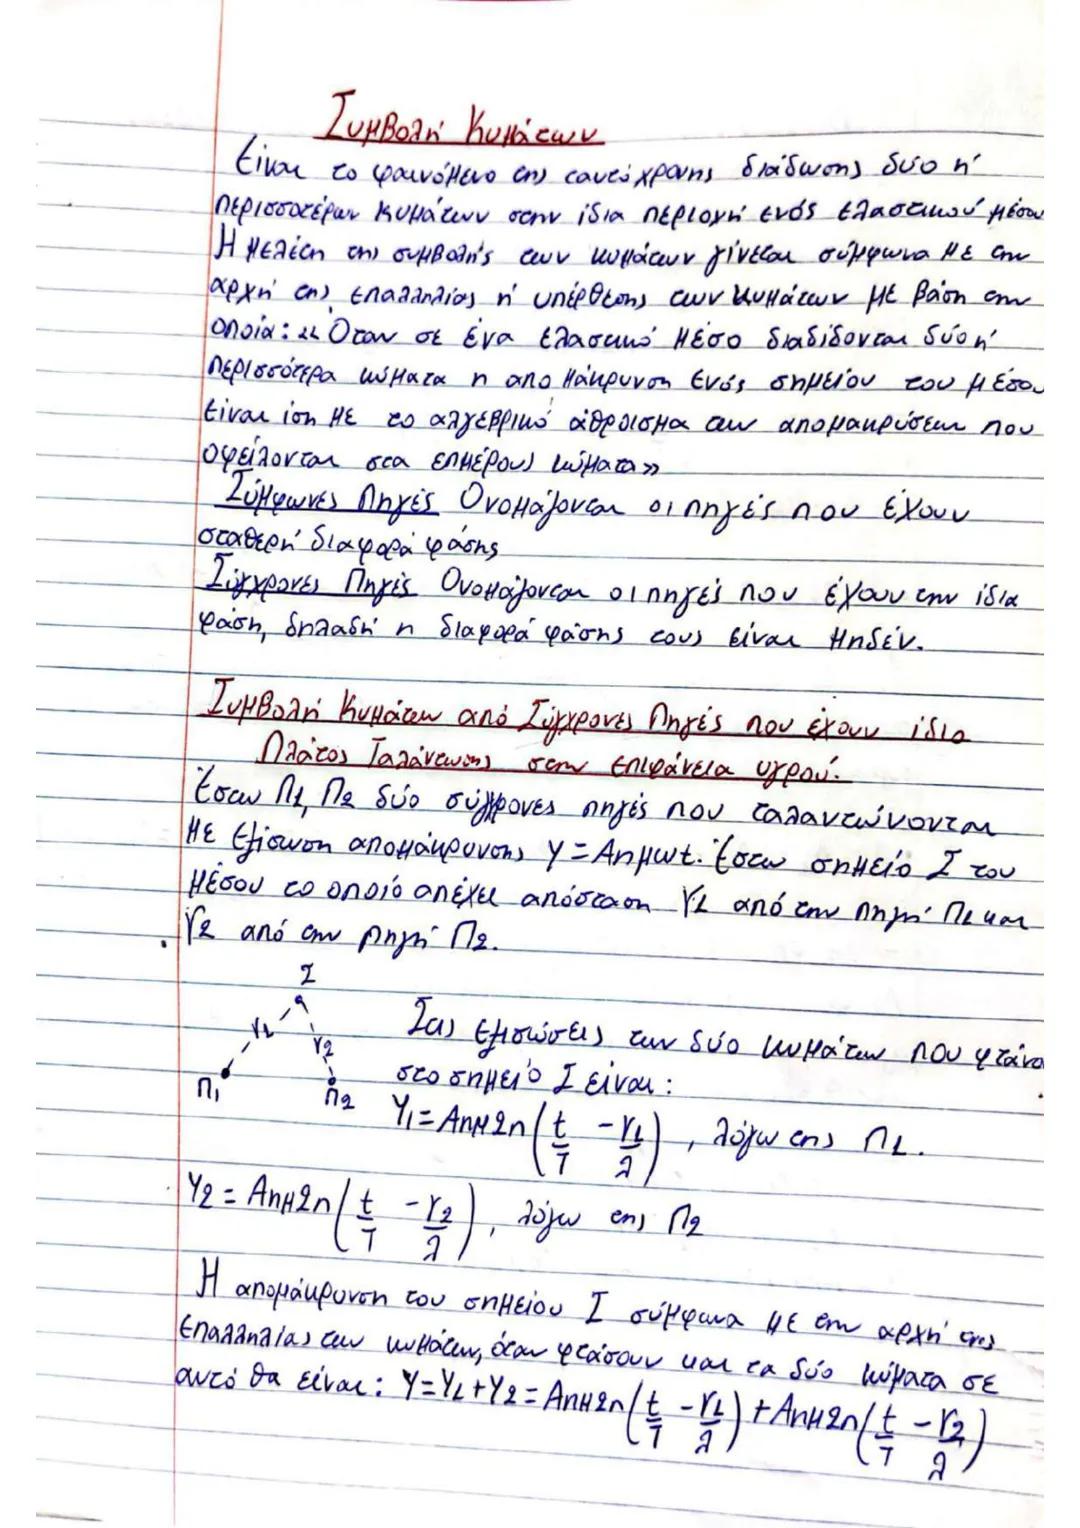 Συμβολή Κυμάτων
Είναι το φαινόμενο της ταυτόχρονης διάδωσης δύο ή
περισσοτέρων κυμάτων στην ίδια περιοχή ενός ελαστικού μέσου
Η μελέτη της συμβολής των κυμάτων γίνεται σύμφωνα με την
αρχή της επαλληλίας ή υπέρθεσης των κυμάτων με βάση την
οποία: «Όταν σε ένα ελαστικό μέσο διαδίδονται δύο ή
περισσότερα κύματα η απομάκρυνση ενός σημείου του μέσου
είναι ίση με το αλγεβρικό άθροισμα των απομακρύσεων που
οφείλονται στα επιμέρους κύματα»
Σύμφωνες Πηγές Ονομάζονται οι πηγές που έχουν
σταθερή διαφορά φάσης
Σύγχρονες Πηγές Ονομάζονται οι πηγές που έχουν την ίδια
φάση, δηλαδή η διαφορά φάσης τους είναι μηδέν.
Συμβολή Κυμάτων από Σύγχρονες Πηγές που έχουν ίδιο
Πλάτος Ταλάντωσης στην επιφάνεια υγρού.
Έστω Π1, Π2 δύο σύγχρονες πηγές που ταλαντώνονται
με εξίσωση απομάκρυνσης y = Aημωt. Έστω σημείο Σ του
μέσου το οποίο απέχει απόσταση r1 από την πηγή Π1 και
r2 από την πηγή Π2.
Σ
r1
r2
Π1
Π2
Στις εξισώσεις των δύο κυμάτων που φτάνο
στο σημείο Σ είναι:
Y1 = Aημ2π(t/T - r1/λ), λόγω της Π1.
Y2 = Aημ2π(t/T - r2/λ), λόγω της Π2
Η απομάκρυνση του σημείου Σ σύμφωνα με την αρχή της
επαλληλίας των κυμάτων, όταν φτάσουν και τα δύο κύματα σε
αυτό θα είναι: Y=Y1+Y2 = Aημ2π(t/T - r1/λ) + Aημ2π(t/T - r2/λ)